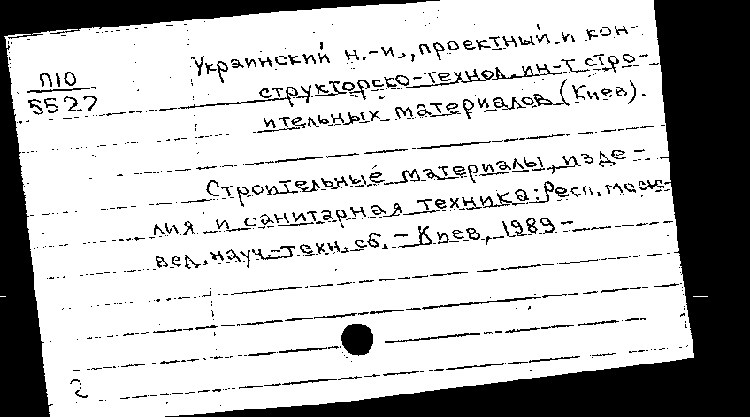 П10
5527
Украинский н.-и., проектный и кон-
структорско-технол. ин-т стро-
ительных материалов (Киев).
Строительные материалы, изде-
лия и санитарная техника: Респ. меж-
вед. науч.-техн. сб. - Киев, 1989 -
2